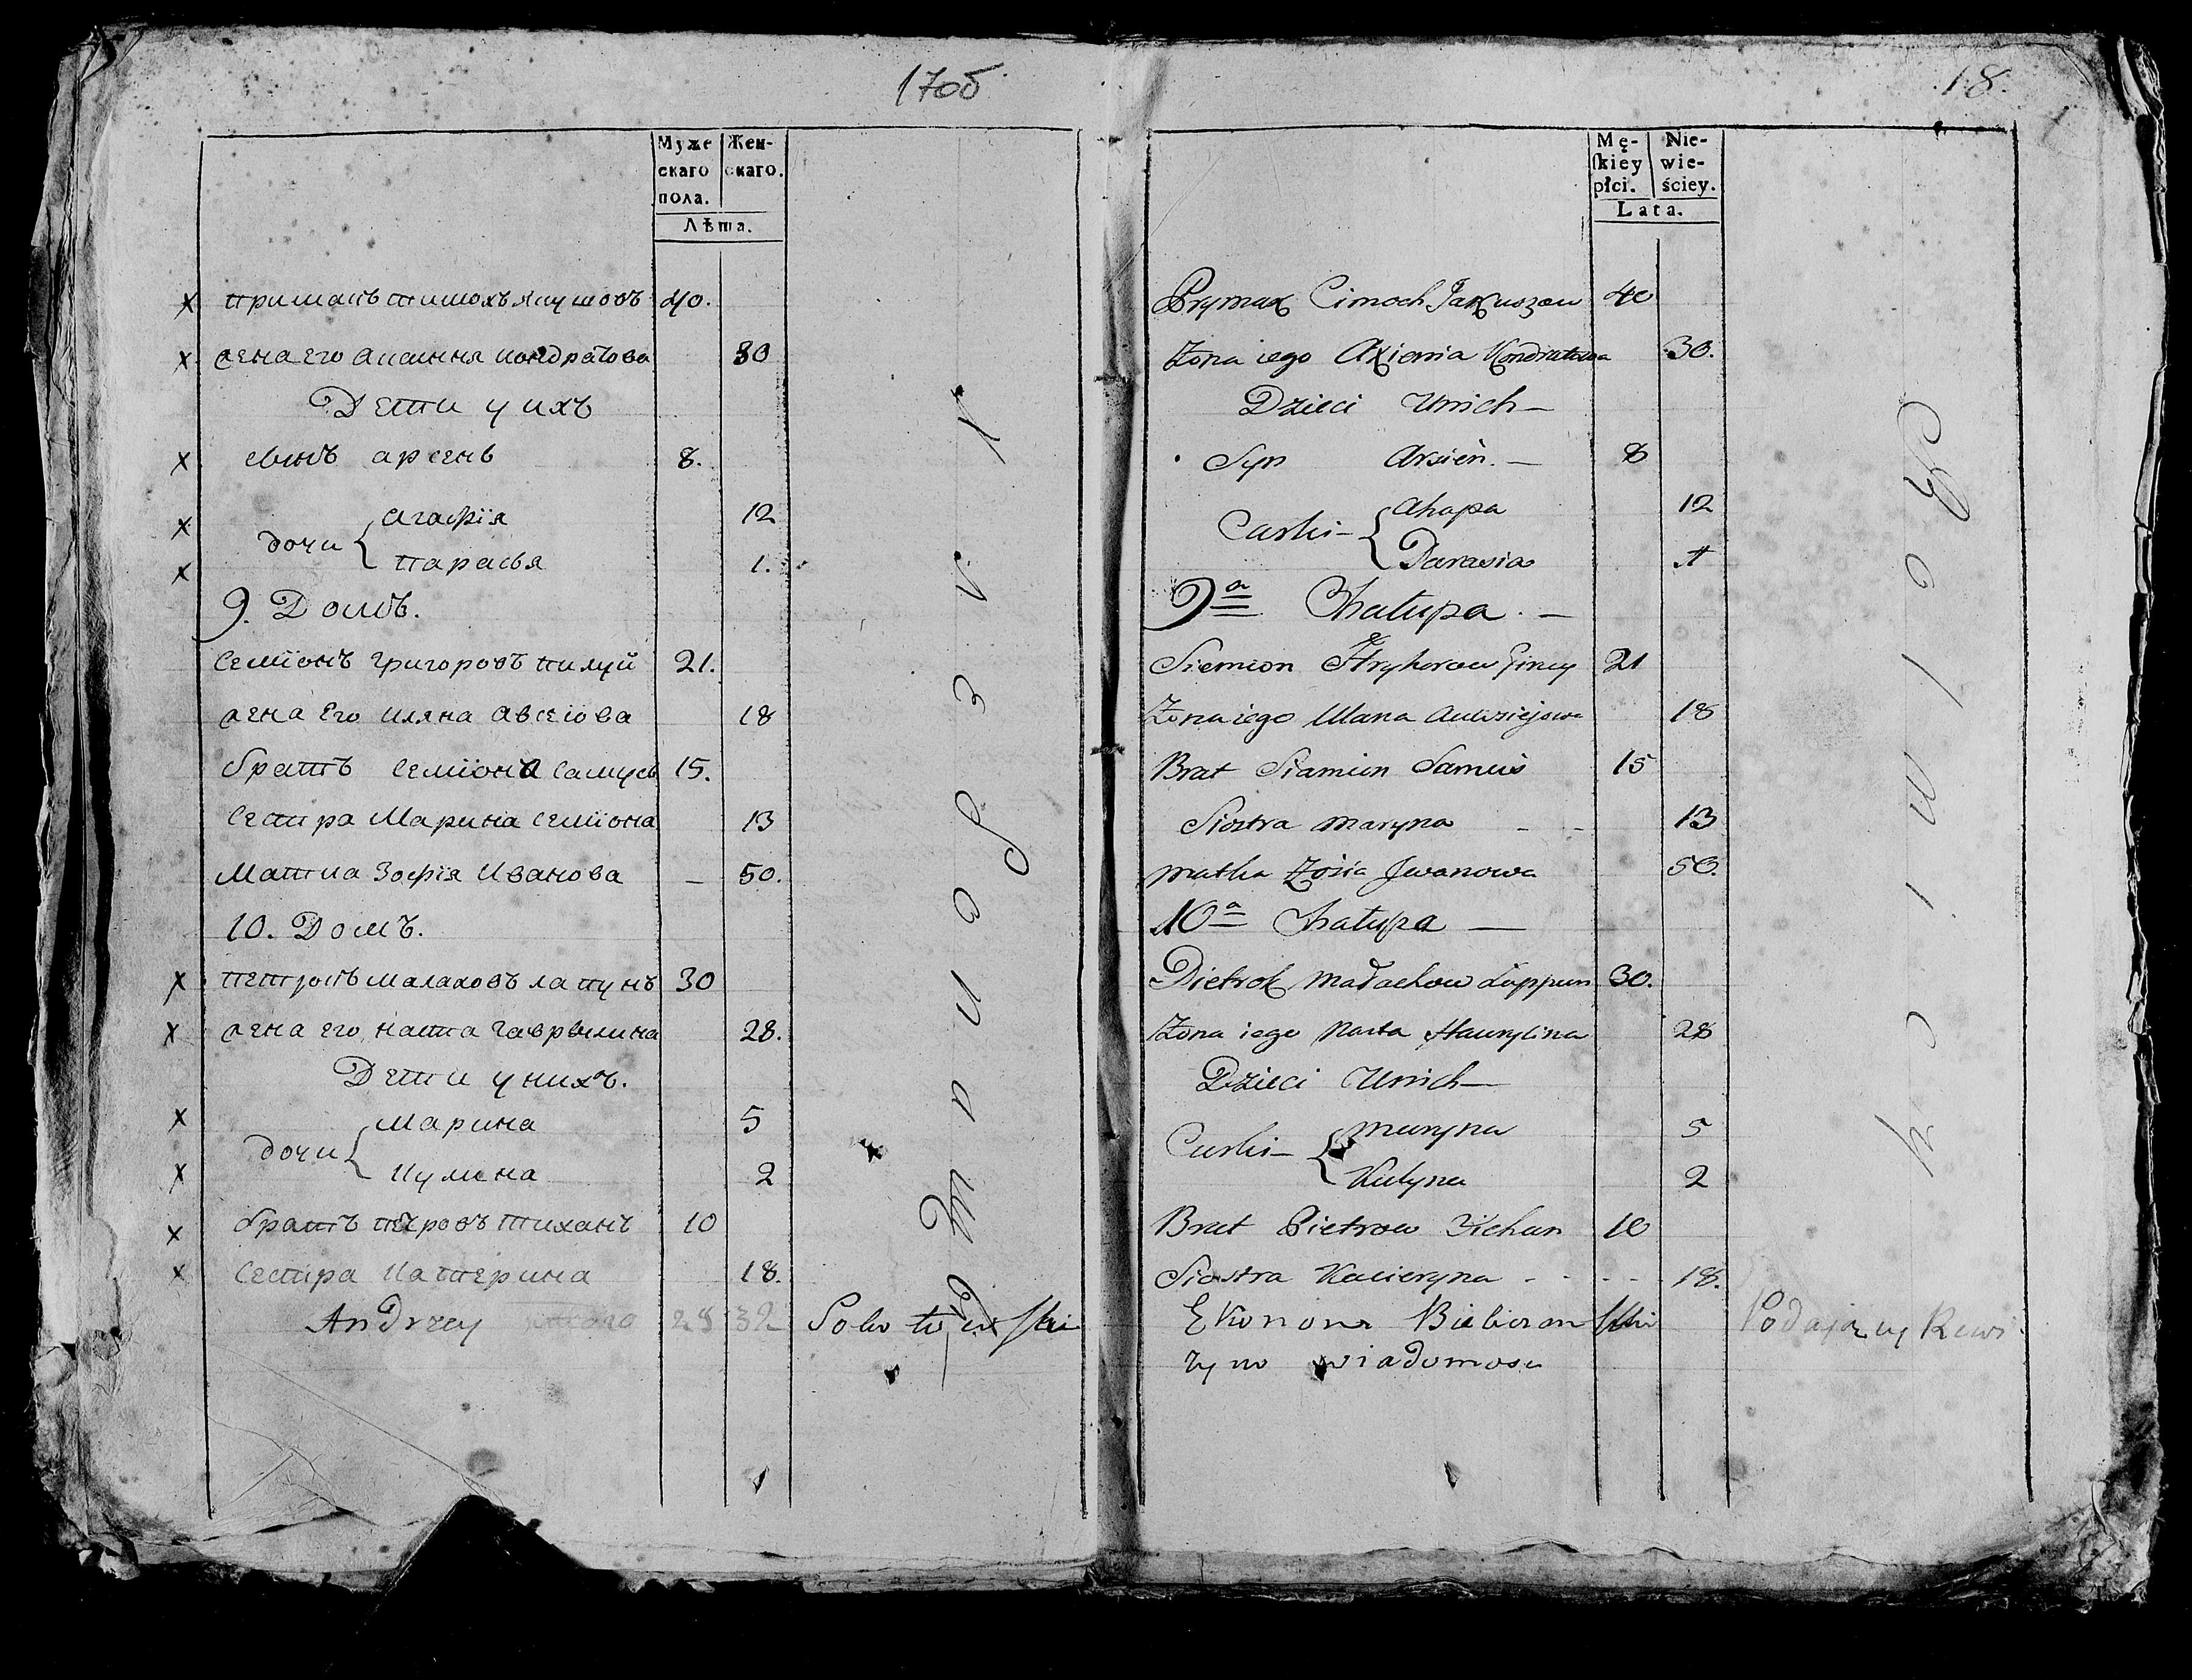 17об
Муже
скаго
пола.
Жен-
скаго.
Лѣта.
примакъ тимохъ якушовъ 40.
жена его аксиння кондратова 30
Дети у ихъ
сынъ арсень 8.
дочки
агафія 12
парасья 1.
9. Домъ.
Семіонъ григоровъ 21.
жена его уляна 18
братъ Семіона Самусь 15.
Сестра Марина семіона 13
Матка Зофія Иванова — 50.
10. Домъ.
петрокъ малаховъ лапунъ 30
жена его наста гаврылина 28.
Дети у нихъ.
дочки
Марина 5
кулина 2
братъ петровъ тиханъ 10
Сестра катерина 18.
Andrzey 32
18.
Mę-
skiey
płci.
Nie-
wie-
ściey.
Lata.
Prymak Cimoch Jakuszow 40
Żona iego Axienia Kondratowa 30.
Dzieci Unich —
Syn Arsień. — 8
Curki —
Ahapa 12
Parasia 1
9a Chałupa. —
Siemion Hryhorow 21
Żona iego Ulana 18
Brat Siamion Samuś 15
Siostra maryna - - 13
matka Zosia Jwanowa 50.
10a Chałupa —
Pietrok Małachow Łappun 30.
Żona iego Nasta Hawrylina 28
Dzieci Unich —
Curki —
Maryna 5
Kulyna 2
Brat Pietrow Cichan 10
Siostra Kacieryna - - - - 18.
Ekonom
Podający Rewi
zyno wiadomosc